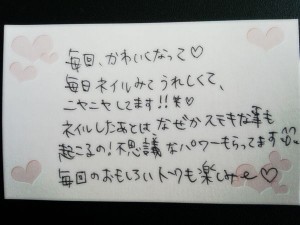 毎回、かわいくなって♡
毎日ネイルみてうれしくて、
ニヤニヤしてます!!
ネイルしたあとは、なぜかステキな事も
起こるの!不思議なパワーもらってます
毎回のおもしろいトークも楽しみ〜♡